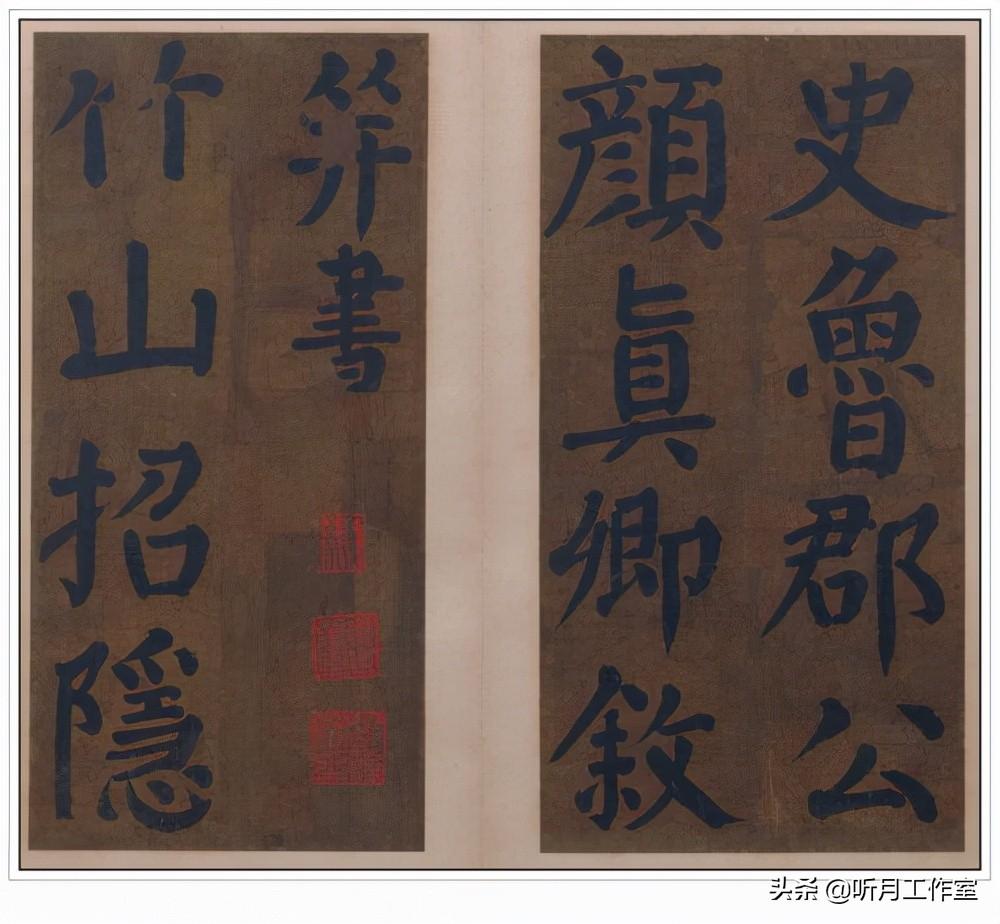 史魯郡公
顔眞卿敘
書
竹山招隱
头条 @听月工作室